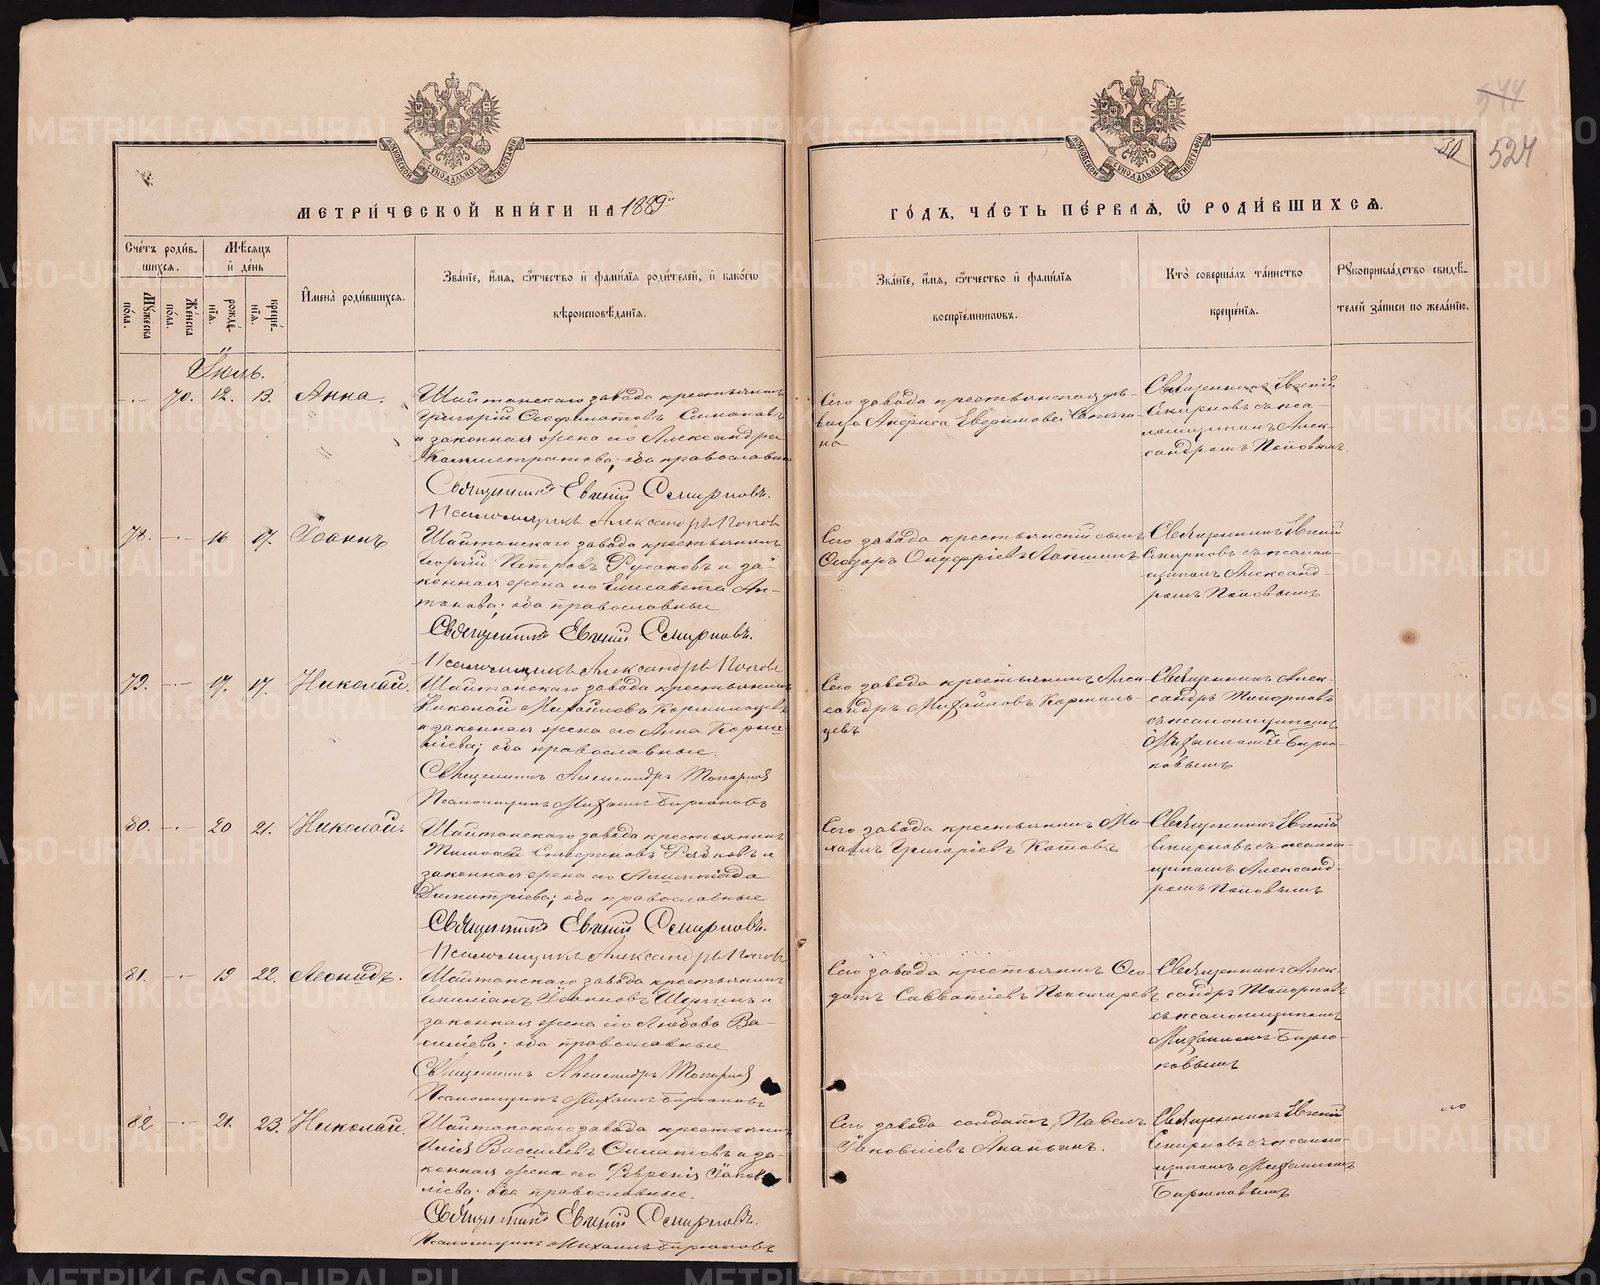 544
524
30
МОСКОВСКОЙ СѴНОДАЛЬНОЙ ТИПОГРАФІИ
МОСКОВСКОЙ СѴНОДАЛЬНОЙ ТИПОГРАФІИ
МЕТРИ́ЧЕСКОЙ КНИ́ГИ НА 1889й
ГО́ДЪ, ЧА́СТЬ ПЕ́РВАѦ, Ѡ РОДИ́ВШИХСѦ.
Сче́тъ роди́в-
шихсѧ.
Мꙋжеска
по́ла.
Же́нска
по́ла.
Мѣ́сѧцъ
и҆ де́нь
рожде́-
нїѧ.
креще́-
нїѧ.
И҆мена̀ роди́вшихсѧ.
Зва́нїе, и҆́мѧ, ѻ҆́тчество и҆ фами́лїѧ роди́телей, и҆ како́гѡ
вѣроисповѣ́данїѧ.
Зва́нїе, и҆́мѧ, ѻ҆́тчество и҆ фами́лїѧ
воспрїе́мникѡвъ.
Кто̀ соверша́лъ та́инство
креще́нїѧ.
Рꙋкоприкла́дство свидѣ́-
телей за́писи по жела́нїю.
Іюль.
70. 12. 13. Анна.
Шайтанскаго завода крестьянинъ
Григорій
и законная жена его Александра
Каллистратова; оба православные
Священникъ Евгеній Смирновъ.
Псаломщикъ Александръ Попов
Сего завода крестьянская дѣ-
вица Анфиса Евдокимова
на
Священникъ Евгеній
Смирновъ съ пса-
ломщикомъ Алек-
сандромъ Поповымъ.
78. 16 17. Іоаннъ
Шайтанскаго завода крестьянинъ
Георгій Петровъ Русаковъ и за-
конная жена его Елисавета Ан-
тонова; оба православные
Священникъ Евгеній Смирновъ.
Псаломщикъ Александръ Попов
Сего завода крестьянскій сынъ
Ѳеодоръ Онуфріевъ Лапшинъ
Священникъ Евгеній
Смирновъ съ псалом-
щикомъ Александ-
ромъ Поповымъ
79. 17. 17. Николай.
Шайтанскаго завода крестьянинъ
Николай Михайловъ Кормильцевъ
и законная жена его Анна Корни-
лiева; оба православные.
Священникъ Александръ Топорков
Псаломщикъ Михаилъ Бирюковъ
Сего завода крестьянинъ Алек-
сандръ Михайловъ Кормиль-
цевъ
Священникъ Алек-
сандръ Топорковъ
съ псаломщикомъ
Михаиломъ Бирю-
ковымъ
80. 20 21. Николай.
Шайтанскаго завода крестьянинъ
Тимоѳей Стефановъ Рябковъ и
законная жена его
Димитріева; оба православные
Священникъ Евгеній Смирновъ.
Псаломщикъ Александръ Попов
Сего завода крестьянинъ Ми-
хаилъ Григорьевъ Котовъ
Священникъ Евгеній
Смирновъ съ псалом-
щикомъ Александ-
ромъ Поповымъ
81. 19 22. Леонидъ.
Шайтанскаго завода крестьянинъ
Іоанновъ и
законная жена его Любовь Ва-
силіева; оба православные
Священникъ Александръ Топорков
Псаломщикъ Михаилъ Бирюковъ
Сего завода крестьянинъ Ѳео-
Савватіевъ Пономаревъ
Священникъ Алек-
сандръ Топорковъ
съ псаломщикомъ
Михаиломъ Бирю-
ковымъ
82. 21. 23. Николай.
Шайтанскаго завода крестьянинъ
Илія Васильевъ и за-
конная жена его Февронія Іаков-
лiева; оба православные.
Священникъ Евгеній Смирновъ.
Псаломщикъ Михаилъ Бирюковъ
Сего завода солдатъ Павелъ
Іаковлiевъ Ананьинъ.
Священникъ Евгеній
Смирновъ съ псалом-
щикомъ Михаиломъ
Бирюковымъ
METRIKI.GASO-URAL.RU